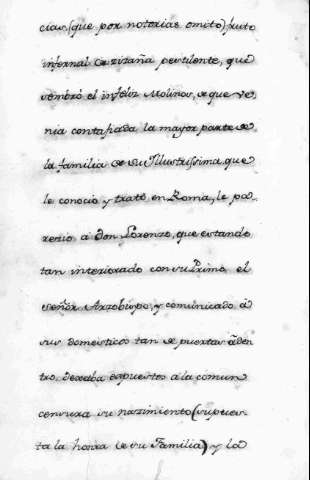 cias, (que por notorias omito) fruto
infernal de zitaña pestilente, que
sembró el infeliz Molinos, de que ve
nia contagiada la mayor parte de
la familia de su Illustrissima que
le conocio y trató en Roma, le pa-
rezió a Don Lorenzo, que estando
tan interiorado con su Primo el
Señor Arzobispo, y comunicado a
sus domesticos tan de puertas aden
tro, dexaba expuestos a la comun
censura su nazimiento (supues
ta la honra de su Familia) y la